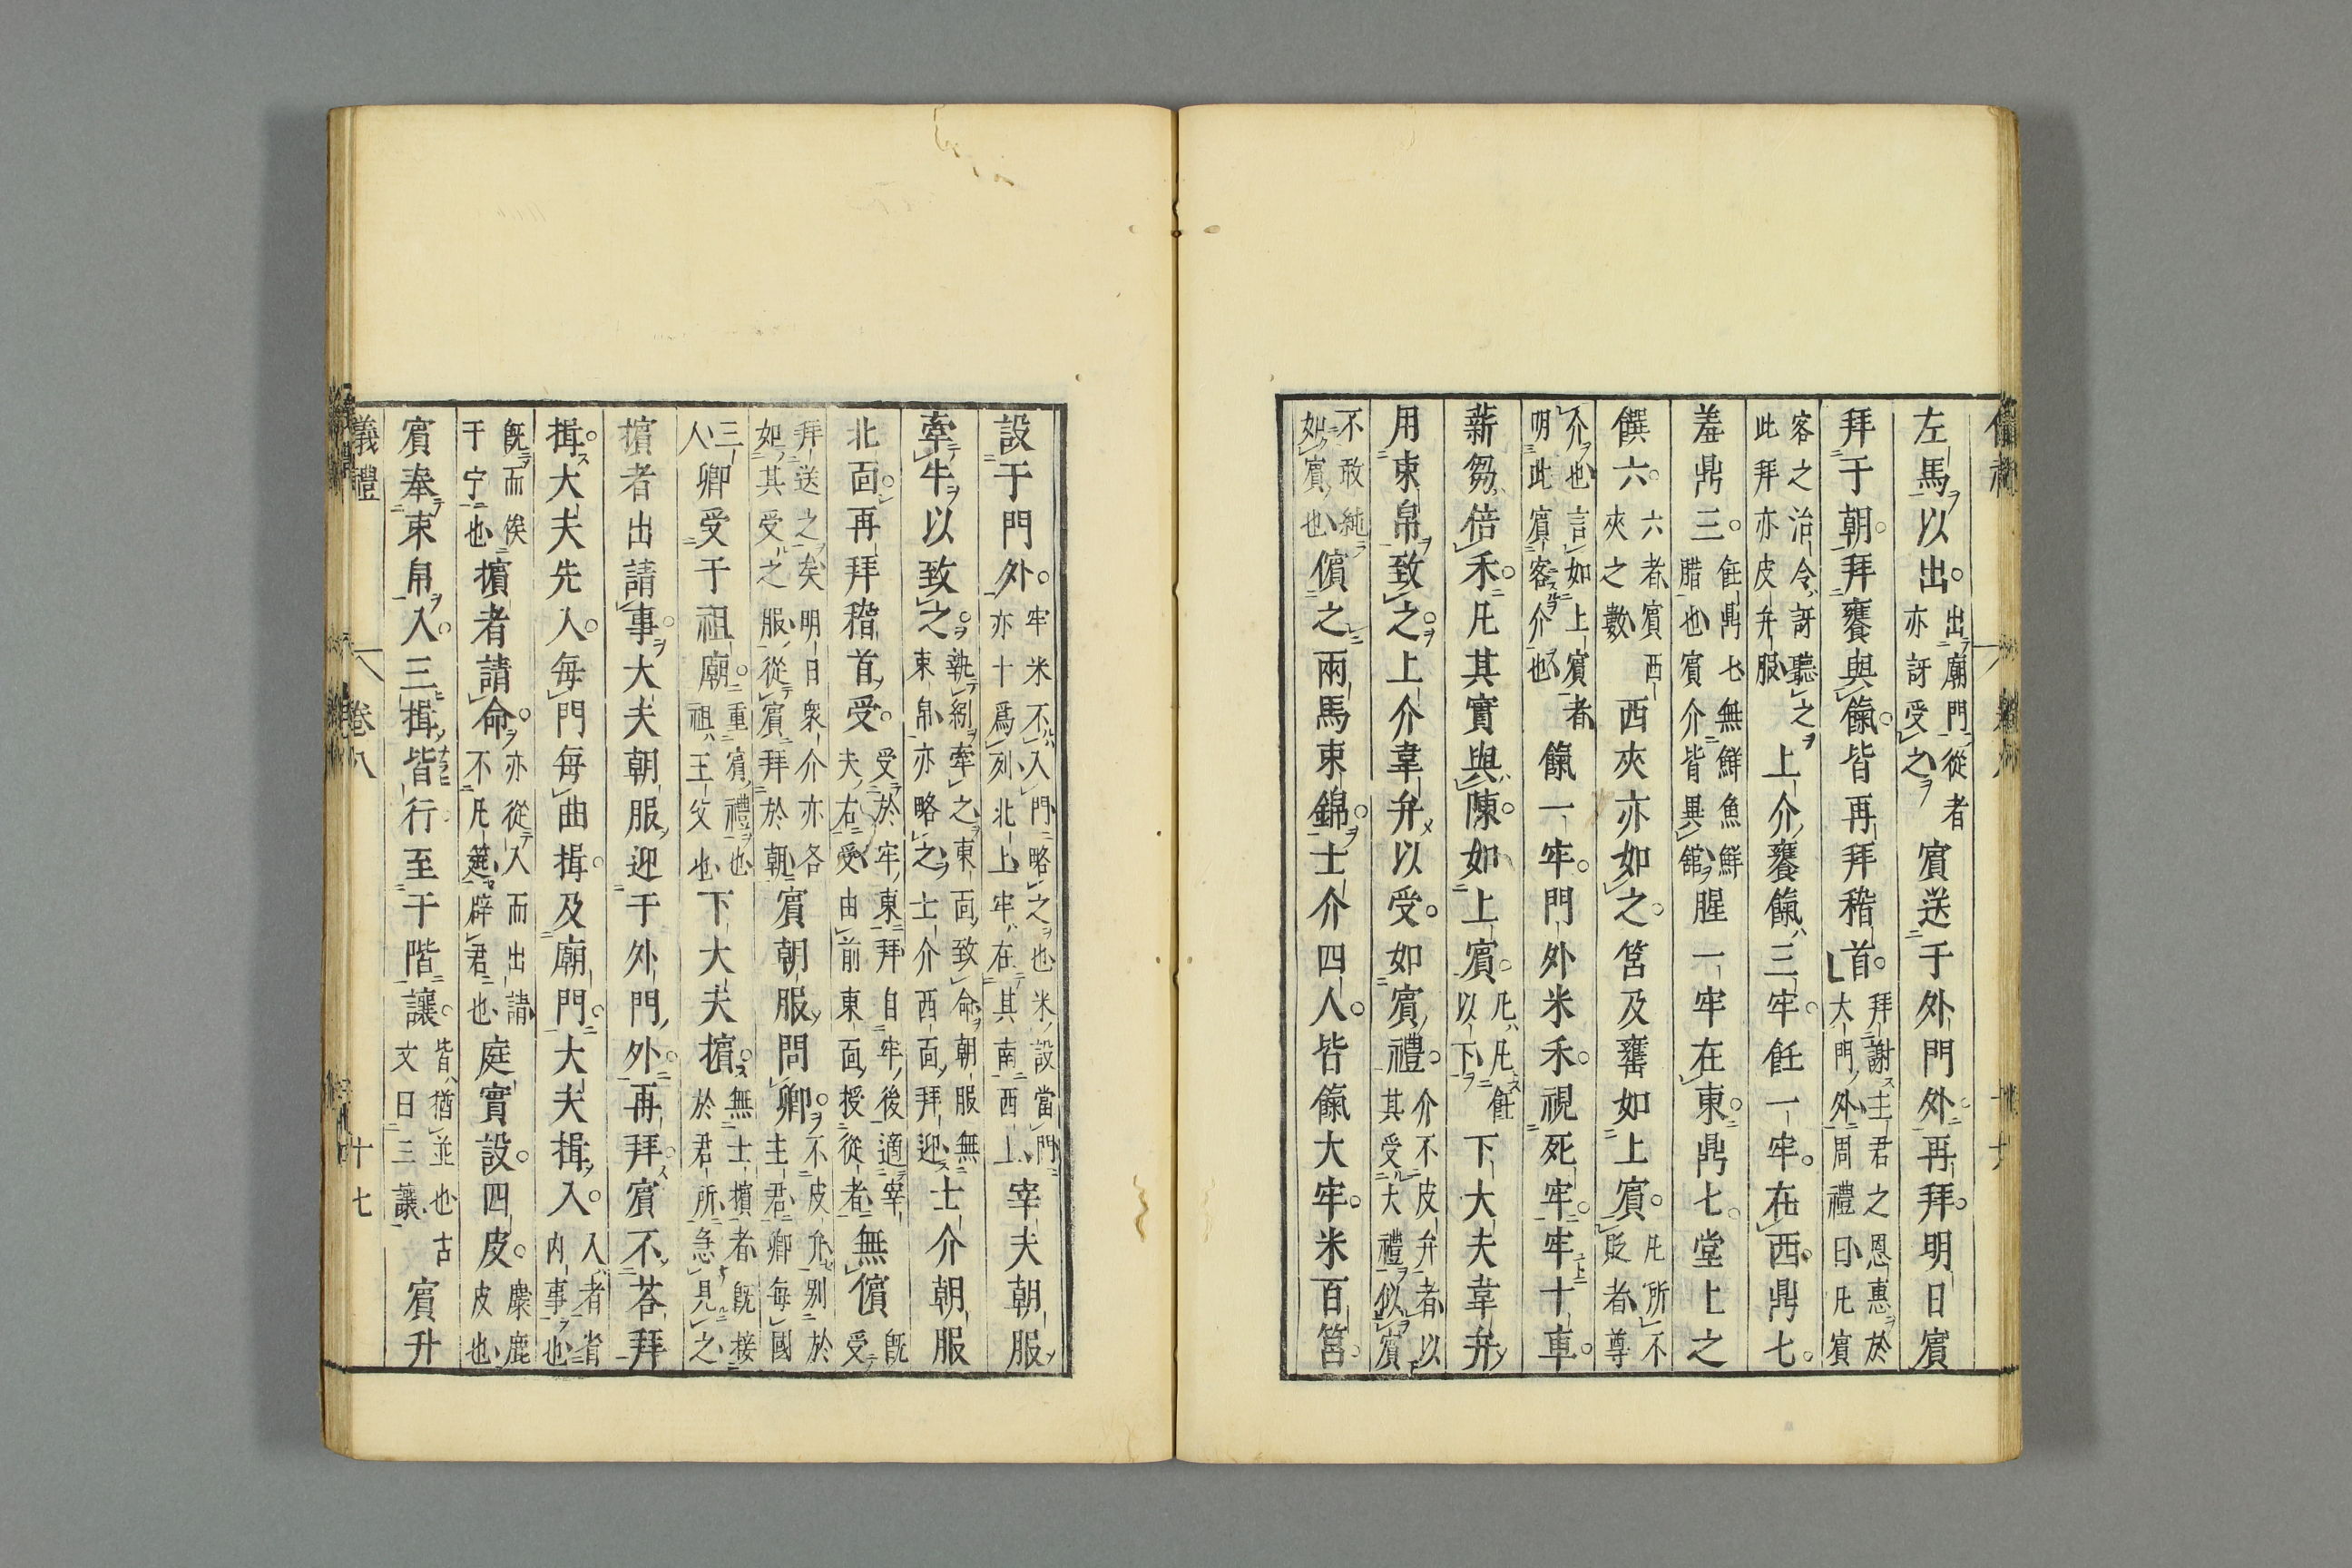 左馬以出。出廟門從者亦訝受之賓送于外門外再拜。明日賓
拜于朝。拜饔與餼。皆再拜稽首。拜謝主君之恩惠於大門外周禮曰凡賓
客之治令訝聽之此拜亦皮弁服上介饔餼三牢。飪一牢。在西。鼎七。
羞鼎三。飪鼎七無鮮魚鮮腊也賓介皆異舘腥一牢在東。鼎七。堂上之
饌六。六者賓西夾之數西夾亦如之。筥及罋如上賓。凡所不貶者尊
介也言如上賓者明此賓客介也餼一牢。門外米禾。視死牢。牢十車。
薪芻倍禾。凡其實與陳。如上賓。凡凡飪以下下大夫韋弁
用束帛致之。上介韋弁以受。如賓禮。介不皮弁者以其受大禮似賓
不敢純如賓也儐之兩馬束錦。士介四人。皆餼大牢。米百筥。
設于門外。牢米不入門略之也米設當門亦十爲列北上牢在其南西上宰夫朝服
牽牛以致之。執紖牽之東面致命朝服無束帛亦略之士介西面拜迎士介朝服
北面。再拜稽首受。受於牢東拜自牢後適宰夫右受由前東面授從者無儐既受
拜送之矣明日衆介亦各如其受之服從賓拜於朝賓朝服問卿。不皮弁別於主君卿每國
三人卿受于祖廟。重賓禮也祖王父也下大夫擯。無士擯者既接於君所急見之
擯者出請事。大夫朝服迎于外門外。再拜。賓不荅拜
揖。大夫先入。每門每曲揖。及廟門。大夫揖入。入者省内事也
既而俟于宁也擯者請命。亦從入而出請不几筵辟君也庭實設。四皮。麋鹿皮也
賓奉束帛入。三揖皆行。至于階。讓。皆猶並也古文曰三讓賓升
義禮 卷八 十七